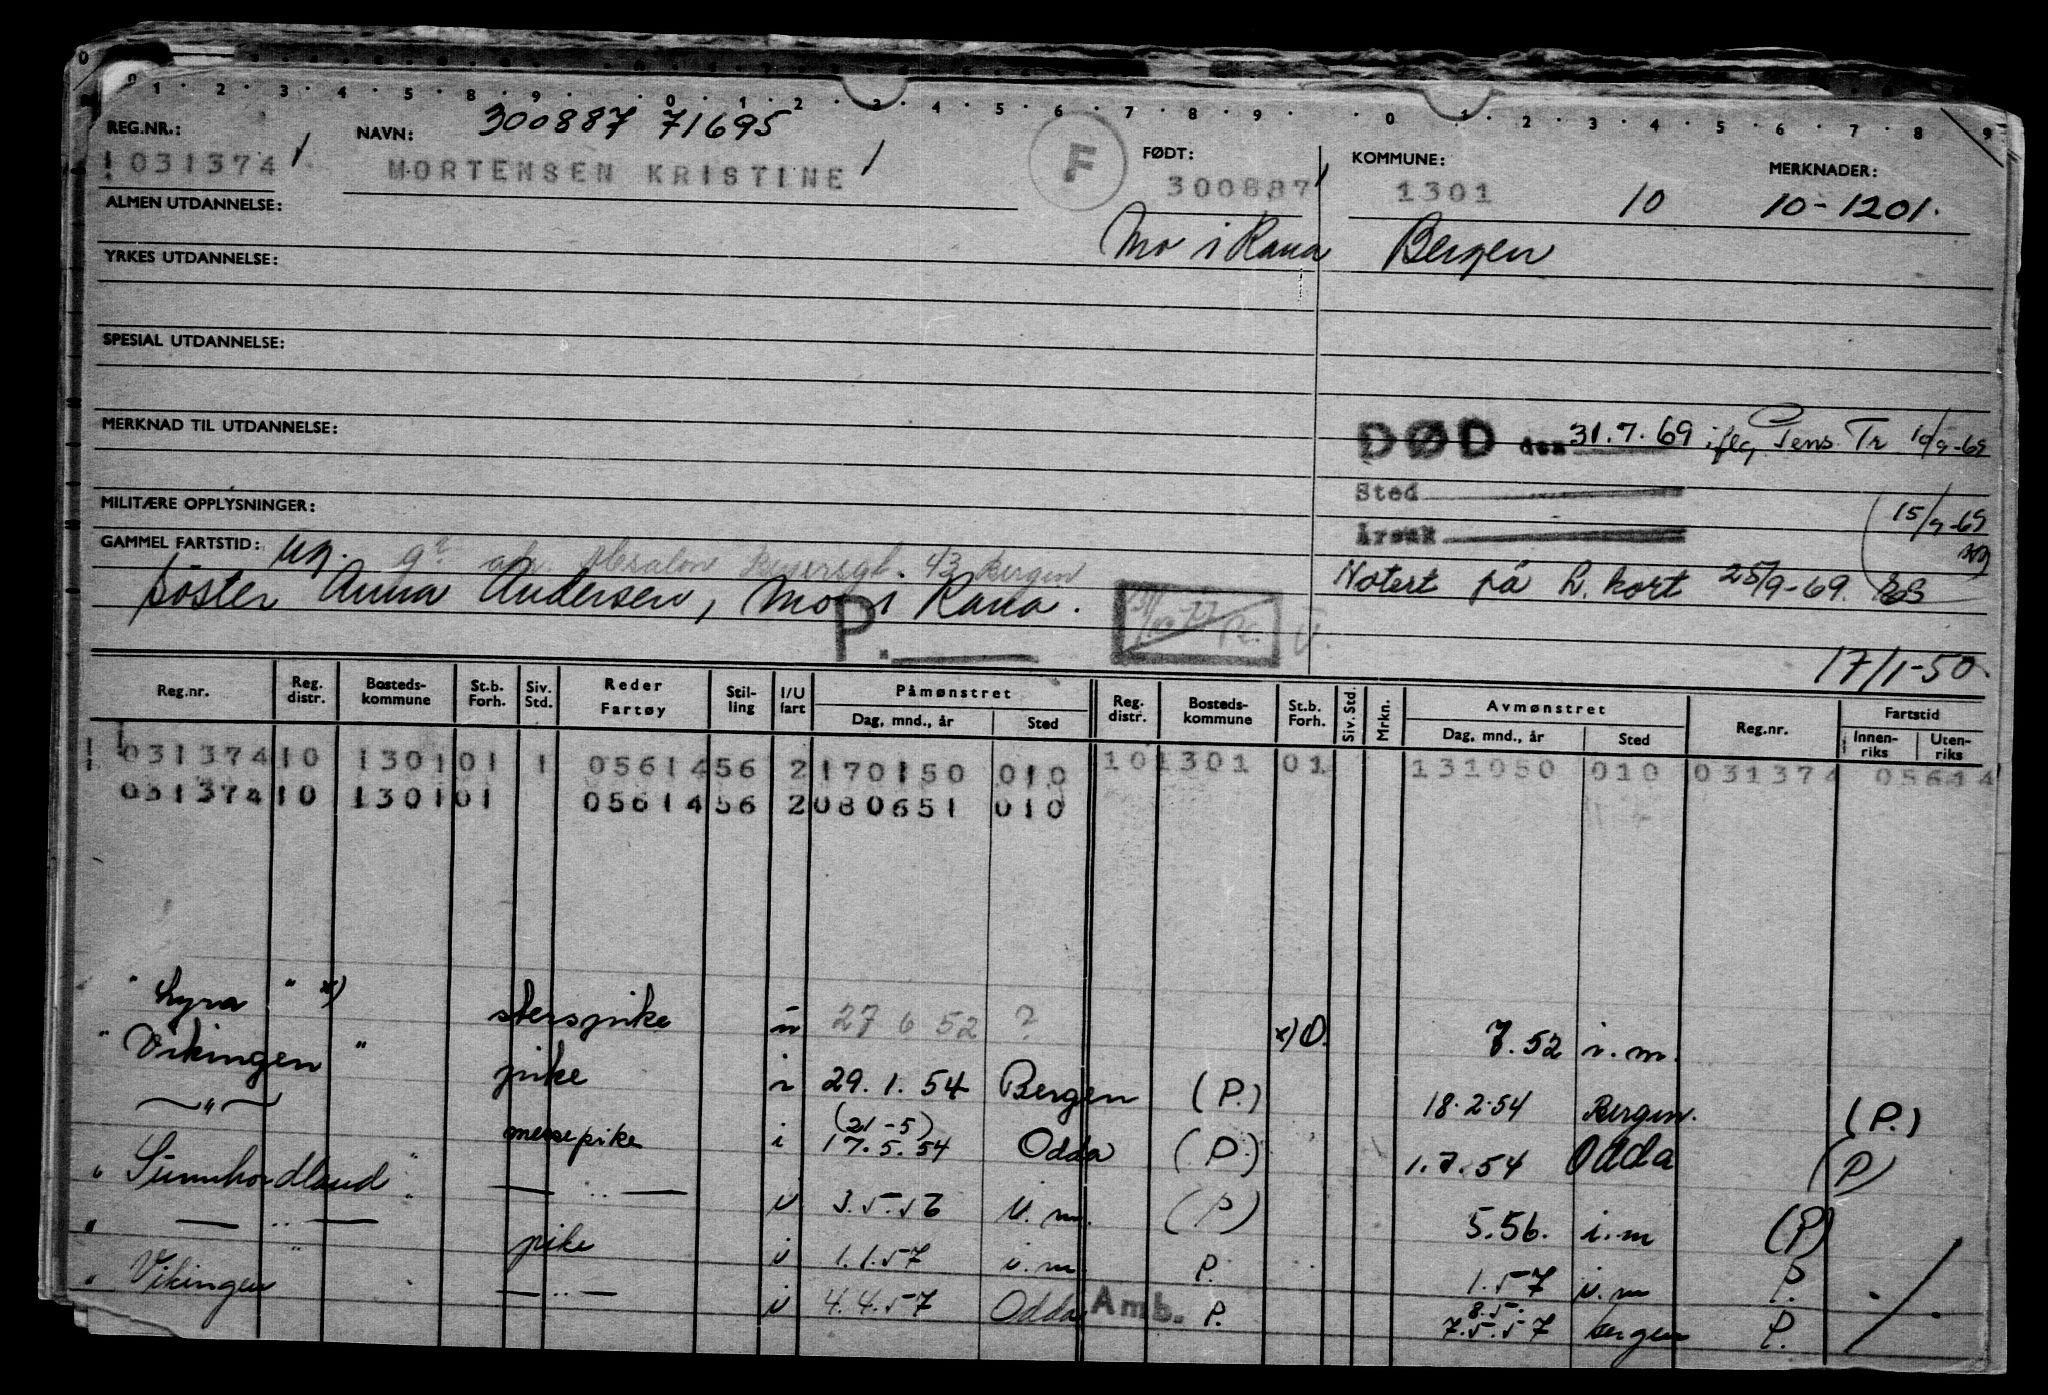 REG.NR.: NAVN: 300887 71695 FØDT: KOMMUNE: MERKNADER:
031374 MORTENSEN KRISTINE F 300887 1301 10 10-1201.
ALMEN UTDANNELSE:
Mo i Rana Bergen
YRKES UTDANNELSE:
SPESIAL UTDANNELSE:
MERKNAD TIL UTDANNELSE:
DØD den 31.7.69 iflg. Pens. Tr 10/9-69
Sted
15/9-69
MILITÆRE OPPLYSNINGER:
Årsak
GAMMEL FARTSTID: ug. adr. Absalon Beyersgt. 43 Bergen
søster Anna Andersen, Mo i Rana.
Notert på L. kort 25/9-69.
P.
17/1-50.
Reg.nr. Reg. distr. Bosteds-kommune St.b. Forh. Siv. Std. Reder Fartøy Stil-ling I/U fart Påmønstret Dag, mnd., år Sted Reg. distr. Bosteds-kommune St.b. Forh. Siv. Std. Mrkn. Avmønstret Dag, mnd., år Sted Reg.nr. Fartstid Innen-riks Uten-riks
031374 10 1301 01 1 05614 56 2 170150 010 10 1301 01 131050 010 031374 05614
031374 10 1301 01 05614 56 2 080651 010
" Lyra " x) u 27 6 52 ? x) O. 7.52 i.m.
" Vikingen " pike i 29.1.54 Bergen (P.) 18.2.54 Bergen. (P.)
—"— messepike i (21-5) 17.5.54 Odda (P.) 1.7.54 Odda (P)
" Sunnhordland " —"— i 3.5.56 i.m. (P) 5.56. i.m (P)
" —"— pike i 1.1.57 i.m. P. 1.57 i.m P.
" Vikingen " —"— i 4.4.57 Odda Amb. P. 8.5. 7.5.57 Bergen P.